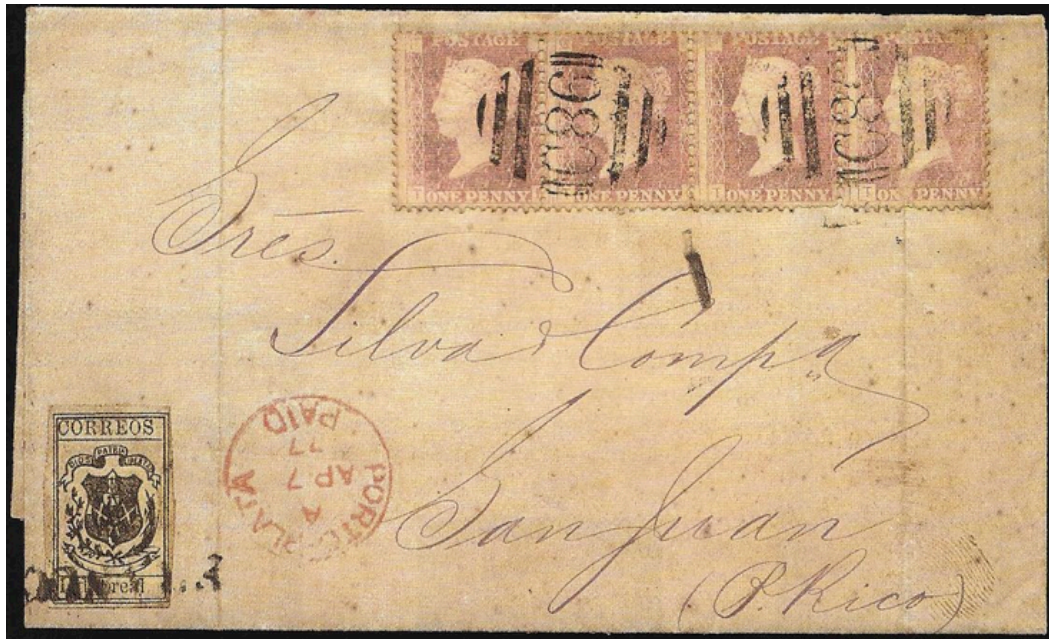 POSTAGE POSTAGE POSTAGE POSTAGE
C86 C86
I ONE PENNY I ONE PENNY I ONE PENNY I ONE PENNY
Sres.
Silva & Compa
San Juan
(P. Rico)
PORTO PLATA
A
AP 7
77
PAID
CORREOS
DIOS PATRIA LIBERTAD
real